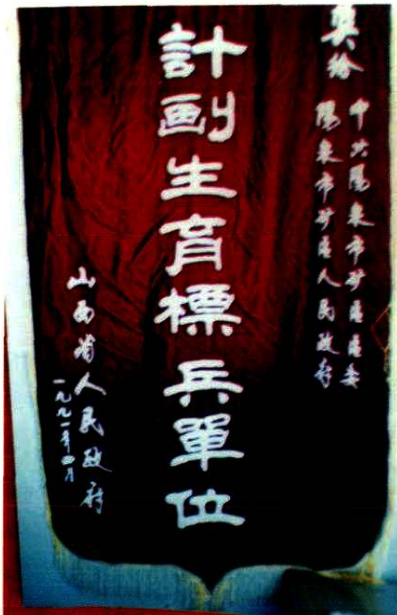 奬给
中共陽泉市矿區區委
陽泉市矿區人民政府
計劃生育標兵單位
山西省人民政府
一九九一年四月